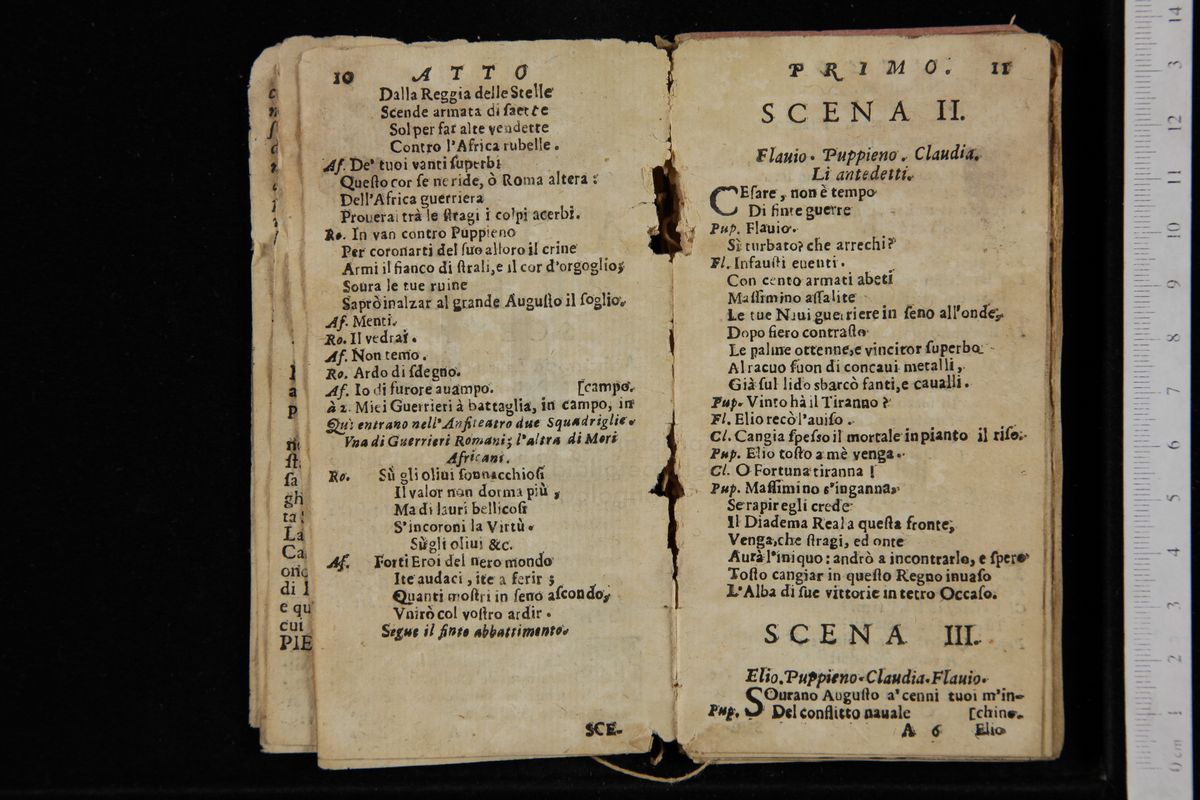 10 ATTO
Dalla Reggia delle Stelle
Scende armata di ſaette
Sol per far alte vendette
Contro l'Africa rubelle.
Af. De' tuoi vanti ſuperbi
Queſto cor ſe ne ride, ò Roma altera:
Dell'Africa guerriera
Prouerai trà le ſtragi i colpi acerbi.
Ro. In van contro Puppieno
Per coronarti del ſuo alloro il crine
Armi il fianco di ſtrali, e il cor d'orgoglio;
Soura le tue ruine
Saprò inalzar al grande Auguſto il ſoglio.
Af. Menti.
Ro. Il vedrai.
Af. Non temo.
Ro. Ardo di ſdegno.
Af. Io di furore auampo. [campo.
à 2. Miei Guerrieri à battaglia, in campo, in
Quì entrano nell'Anfiteatro due Squadriglie.
Vna di Guerrieri Romani; l'altra di Mori
Africani.
Ro. Sù gli oliui ſonnacchioſi
Il valor non dorma più,
Ma di lauri bellicoſi
S'incoroni la Virtù.
Sù gli oliui &c.
Af. Forti Eroi del nero mondo
Ite audaci, ite a ferir;
Quanti moſtri in ſeno aſcondo,
Vnirò col voſtro ardir.
Segue il finto abbattimento.
SCE-
PRIMO. 11
SCENA II.
Flauio. Puppieno. Claudia.
Li antedetti.
CEſare, non è tempo
Di finte guerre
Pup. Flauio.
Sì turbato? che arrechi?
Fl. Infauſti euenti.
Con cento armati abeti
Maſſimino aſſalite
Le tue Naui guerriere in ſeno all'onde,
Dopo fiero contraſto
Le palme ottenne, e vincitor ſuperbo
Al racuo ſuon di concaui metalli,
Già ſul lido sbarcò fanti, e caualli.
Pup. Vinto hà il Tiranno?
Fl. Elio recò l'auiſo.
Cl. Cangia ſpeſſo il mortale in pianto il riſo.
Pup. Elio toſto a mè venga.
Cl. O Fortuna tiranna!
Pup. Maſſimino s'inganna,
Se rapir egli crede
Il Diadema Real a queſta fronte;
Venga, che ſtragi, ed onte
Aurà l'iniquo: andrò a incontrarlo, e ſpero
Toſto cangiar in queſto Regno inuaſo
L'Alba di ſue vittorie in tetro Occaſo.
SCENA III.
Elio. Puppieno. Claudia. Flauio.
SOurano Auguſto a' cenni tuoi m'in-
Pup. Del conflitto nauale [chino.
A 6 Elio